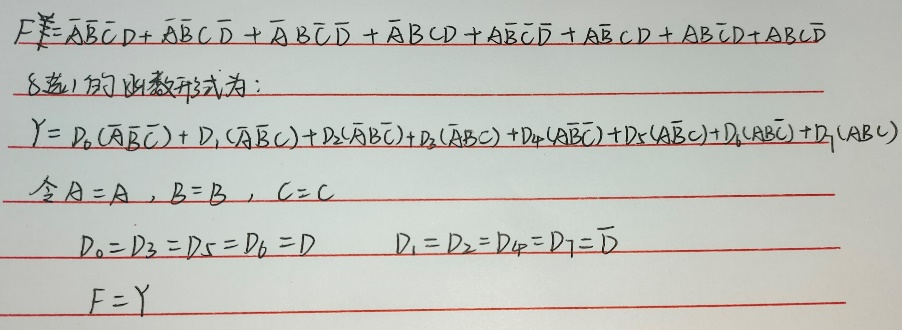 F=A̅B̅C̅D+A̅B̅CD̅+A̅BC̅D̅+A̅BCD+AB̅C̅D̅+AB̅CD+ABC̅D+ABCD̅
8选1的函数形式为:
Y=D₀(A̅B̅C̅)+D₁(A̅B̅C)+D₂(A̅BC̅)+D₃(A̅BC)+D₄(AB̅C̅)+D₅(AB̅C)+D₆(ABC̅)+D₇(ABC)
令A=A,B=B,C=C
D₀=D₃=D₅=D₆=D D₁=D₂=D₄=D₇=D̅
F=Y